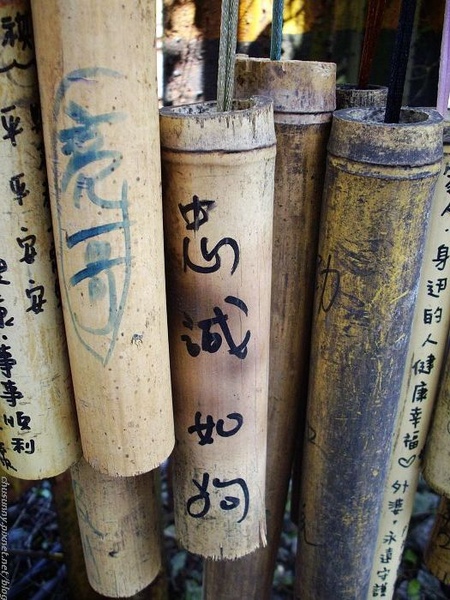 平平安安
事事順利
亮哥
忠誠如狗
身邊的人健康幸福♡外婆,永遠守護
chusunny.pixnet.net/blog